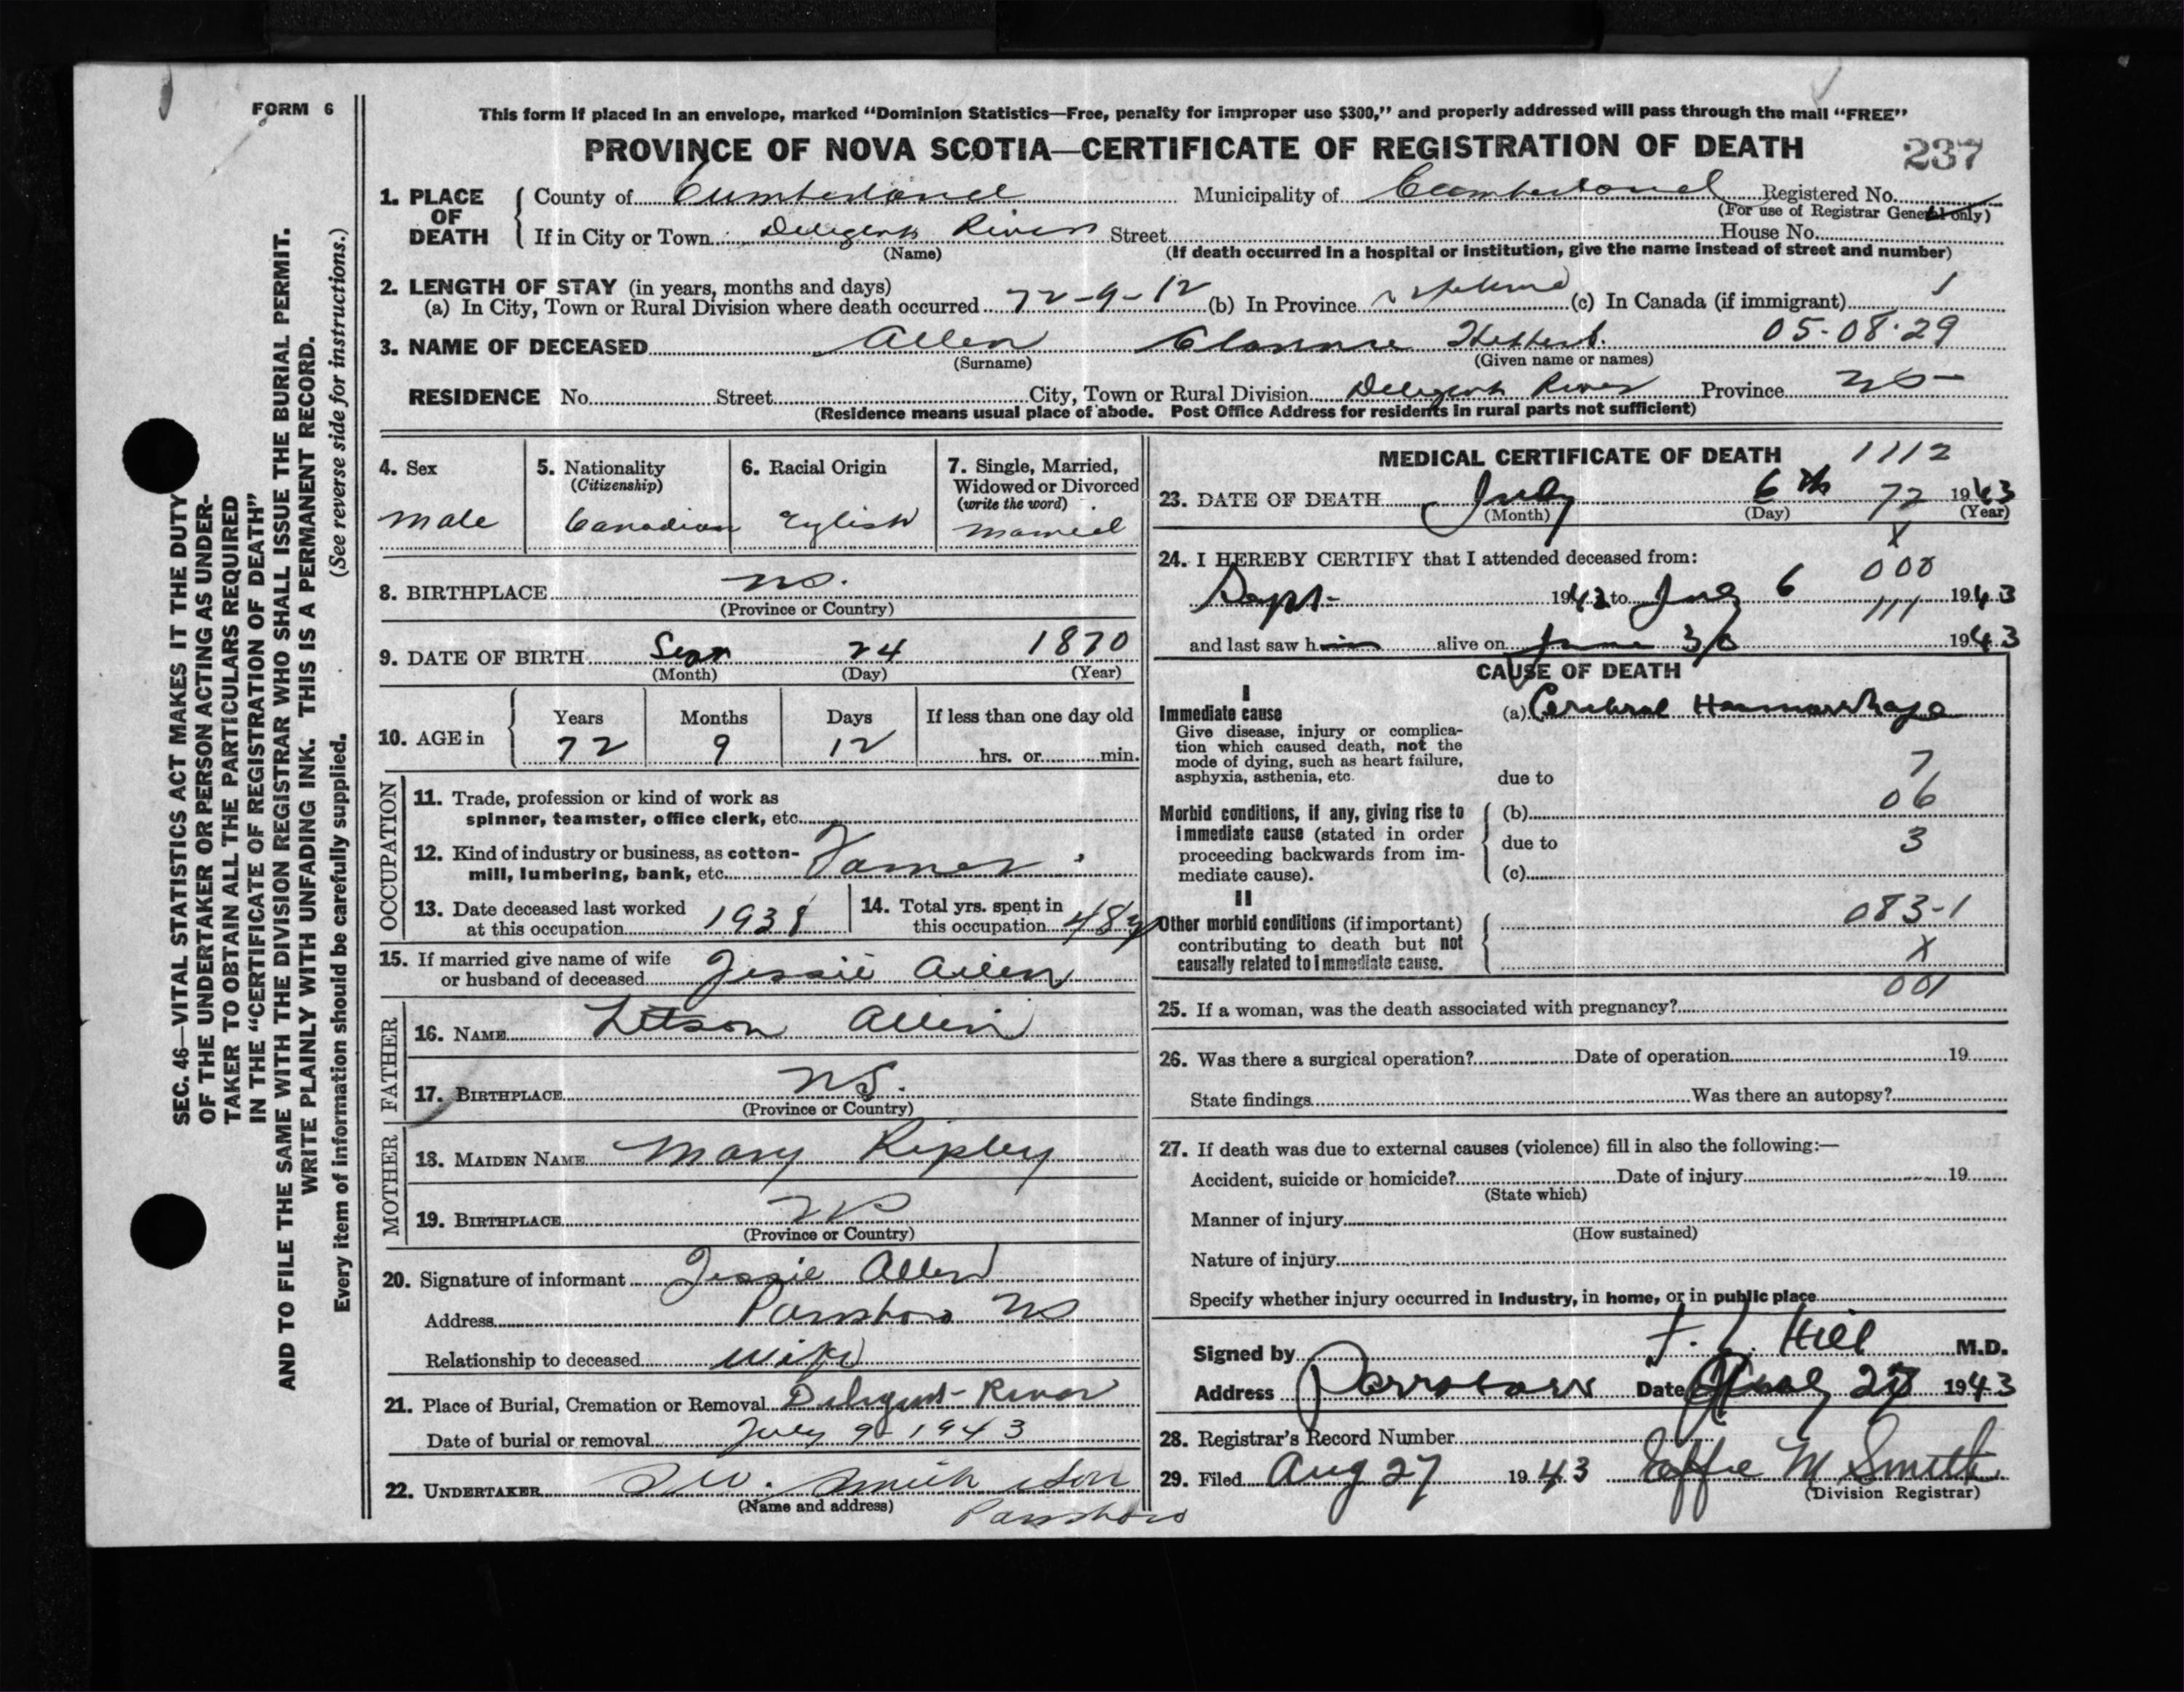 FORM 6
This form if placed in an envelope, marked “Dominion Statistics—Free, penalty for improper use $300,” and properly addressed will pass through the mail “FREE”
PROVINCE OF NOVA SCOTIA—CERTIFICATE OF REGISTRATION OF DEATH
237
1. PLACE OF DEATH
County of Cumberland Municipality of Cumberland Registered No.
(For use of Registrar General only)
If in City or Town Deligent River Street House No.
(Name) (If death occurred in a hospital or institution, give the name instead of street and number)
2. LENGTH OF STAY (in years, months and days)
(a) In City, Town or Rural Division where death occurred 72-9-12 (b) In Province (c) In Canada (if immigrant) 1
3. NAME OF DECEASED Allen Clarence 05-08-29
(Surname) (Given name or names)
RESIDENCE No. Street City, Town or Rural Division Deligent River Province NS
(Residence means usual place of abode. Post Office Address for residents in rural parts not sufficient)
4. Sex
Male
5. Nationality
(Citizenship)
Canadian
6. Racial Origin
English
7. Single, Married,
Widowed or Divorced
(write the word)
Married
8. BIRTHPLACE NS.
(Province or Country)
9. DATE OF BIRTH Sept 24 1870
(Month) (Day) (Year)
10. AGE in
Years Months Days If less than one day old
72 9 12 hrs. or min.
OCCUPATION
11. Trade, profession or kind of work as
spinner, teamster, office clerk, etc.
12. Kind of industry or business, as cotton-
mill, lumbering, bank, etc. Farmer
13. Date deceased last worked
at this occupation 1938
14. Total yrs. spent in
this occupation 48 y
15. If married give name of wife
or husband of deceased Jessie Allen
FATHER
16. NAME Letson Allen
17. BIRTHPLACE NS.
(Province or Country)
MOTHER
18. MAIDEN NAME Mary Ripley
19. BIRTHPLACE NS
(Province or Country)
20. Signature of informant Jessie Allen
Address Parrsboro NS
Relationship to deceased Wife
21. Place of Burial, Cremation or Removal Deligent River
Date of burial or removal July 9-1943
22. UNDERTAKER Smith & Son
(Name and address) Parrsboro
MEDICAL CERTIFICATE OF DEATH 1112
23. DATE OF DEATH July 6th 72 1943
(Month) (Day) (Year)
X
24. I HEREBY CERTIFY that I attended deceased from:
000
Sept- 1942 to July 6 1943
111
and last saw him alive on June 30 1943
CAUSE OF DEATH
I
Immediate cause
Give disease, injury or complica-
tion which caused death, not the
mode of dying, such as heart failure,
asphyxia, asthenia, etc.
(a) Cerebral Haemorrhage
due to 7
Morbid conditions, if any, giving rise to
immediate cause (stated in order
proceeding backwards from im-
mediate cause).
(b) 06
due to 3
(c)
II
Other morbid conditions (if important)
contributing to death but not
causally related to immediate cause.
083-1
X
001
25. If a woman, was the death associated with pregnancy?
26. Was there a surgical operation? Date of operation 19
State findings Was there an autopsy?
27. If death was due to external causes (violence) fill in also the following:—
Accident, suicide or homicide? Date of injury 19
(State which)
Manner of injury
(How sustained)
Nature of injury
Specify whether injury occurred in Industry, in home, or in public place
Signed by F. L. Hill M.D.
Address Parrsboro Date 1943
28. Registrar's Record Number
29. Filed Aug 27 1943 Effie M Smith
(Division Registrar)
SEC. 46—VITAL STATISTICS ACT MAKES IT THE DUTY
OF THE UNDERTAKER OR PERSON ACTING AS UNDER-
TAKER TO OBTAIN ALL THE PARTICULARS REQUIRED
IN THE “CERTIFICATE OF REGISTRATION OF DEATH”
AND TO FILE THE SAME WITH THE DIVISION REGISTRAR WHO SHALL ISSUE THE BURIAL PERMIT.
WRITE PLAINLY WITH UNFADING INK. THIS IS A PERMANENT RECORD.
Every item of information should be carefully supplied. (See reverse side for instructions.)